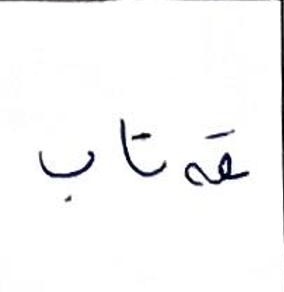 قە تاب